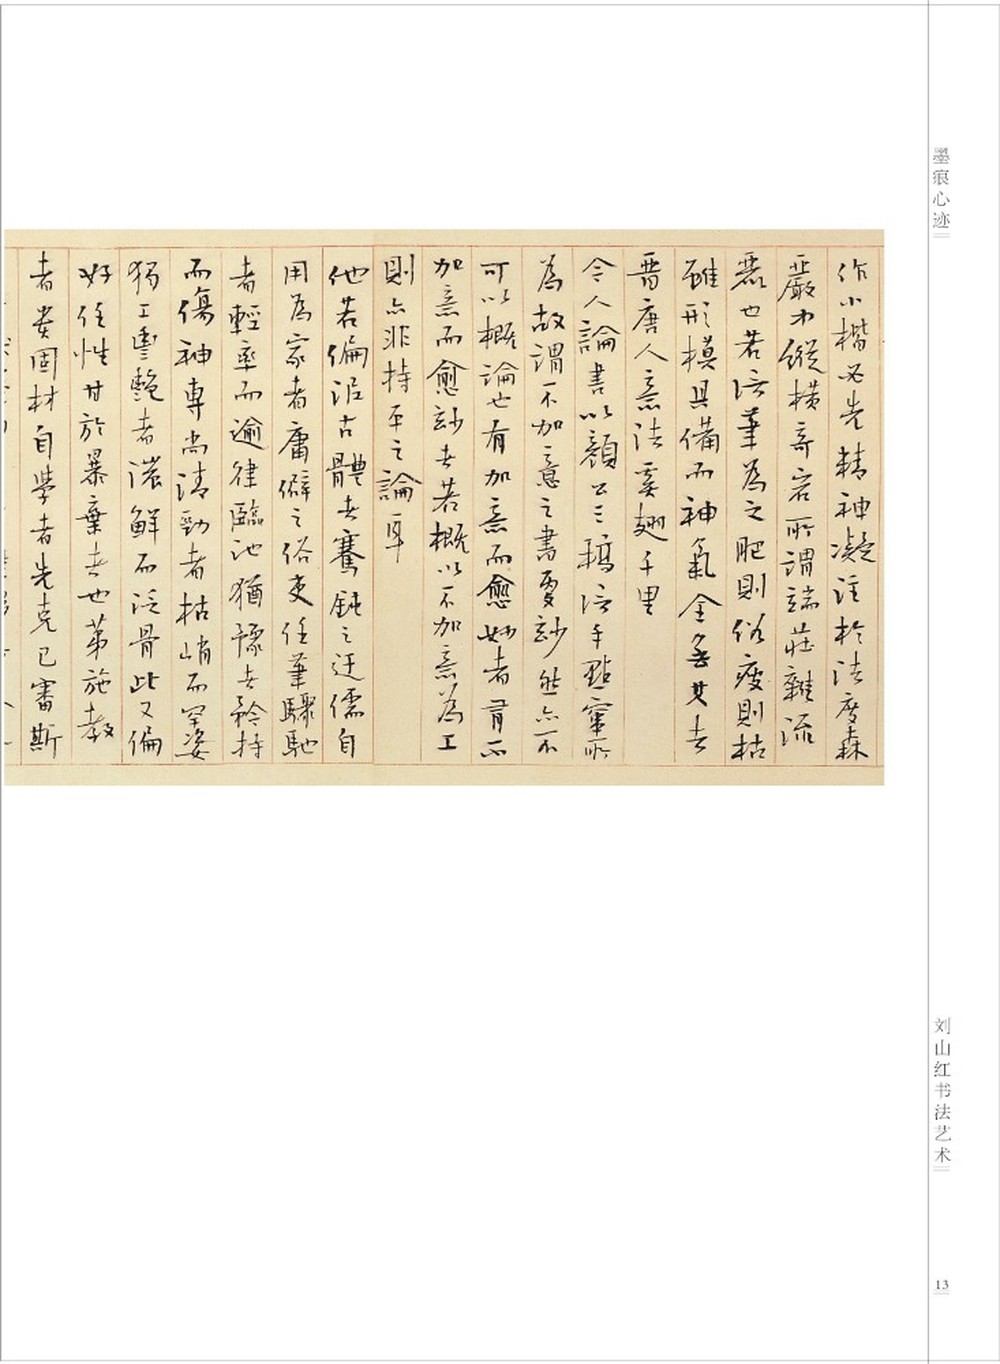 作小楷必先精神凝注於法度森
嚴而縱橫奇宕所謂端莊雜流
麗也若信筆為之肥則俗瘦則枯
雖形模具備而神氣全無其去
晋唐人意法奚翅千里
今人論書以顏公三稿信手點竄所
為故謂不加意之書更妙然亦不
可以概論也有加意而愈妙者有不
加意而愈妙者若概以不加意為工
則亦非持平之論耳
他若偏泥古體者蹇鈍之迂儒自
用為家者庸僻之俗吏任筆驟馳
者輕率而逾律臨池猶豫者矜持
而傷神專尚清勁者枯峭而罕姿
獨工豐艷者濃鮮而泛骨此又偏
好任性甘於暴棄者也第施教
者貴因材自學者先克己審斯
墨痕心迹
刘山红书法艺术
13